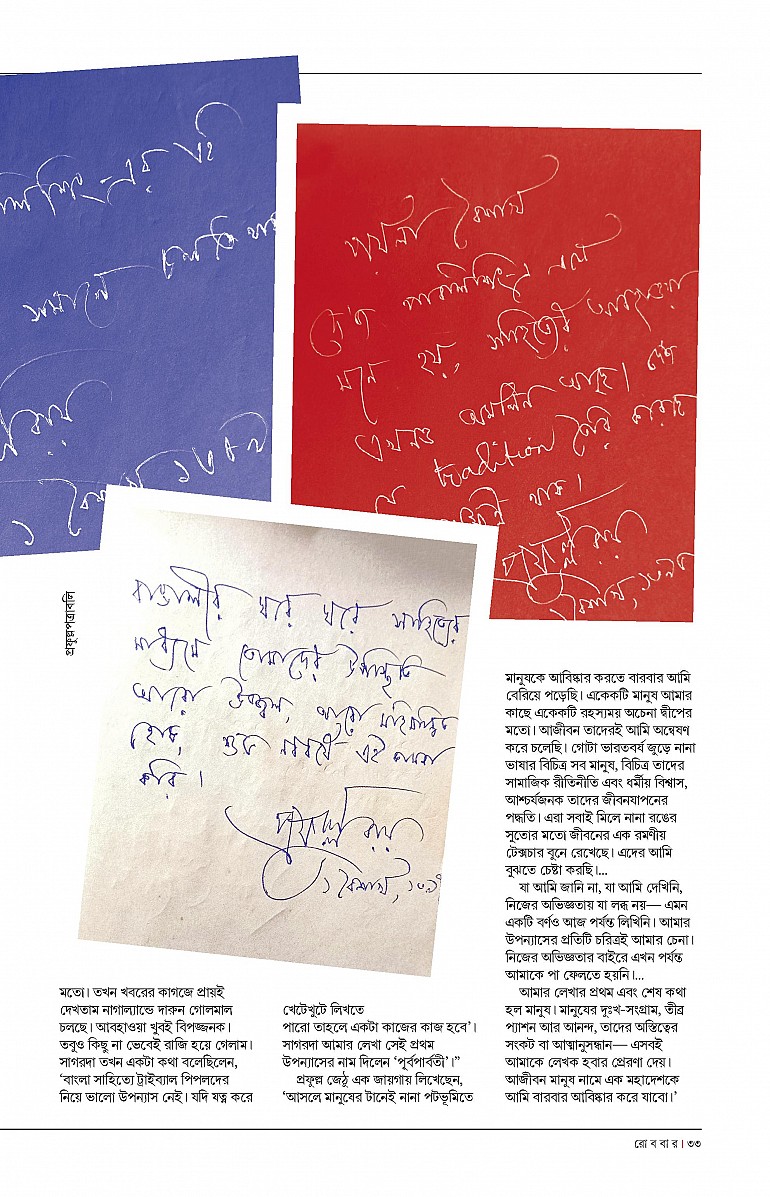 লি শিং-এর এই
সকালে
১ বৈশাখ ১৩৮৭
পয়লা বৈশাখ
দে'জ পাবলিশিং-এ এসে
মনে হয়, সাহিত্যের আবহাওয়া
এখনও অমলিন আছে। দে'জ
tradition তৈরি করেছে
থাক।
প্রফুল্ল রায়
বৈশাখ,
প্রফুল্লপত্রাবলি
বাঙালীর ঘরে ঘরে সাহিত্যের
মাধ্যমে তোমাদের উপস্থিতি
আরো উজ্জ্বল, আরো মহিমান্বিত
হোক, শুভ নববর্ষে এই কামনা
করি।
প্রফুল্ল রায়
১ বৈশাখ,
মতো। তখন খবরের কাগজে প্রায়ই
দেখতাম নাগাল্যান্ডে দারুন গোলমাল
চলছে। আবহাওয়া খুবই বিপজ্জনক।
তবুও কিছু না ভেবেই রাজি হয়ে গেলাম।
সাগরদা তখন একটা কথা বলেছিলেন,
‘বাংলা সাহিত্যে ট্রাইব্যাল পিপলদের
নিয়ে ভালো উপন্যাস নেই। যদি যত্ন করে
খেটেখুটে লিখতে
পারো তাহলে একটা কাজের কাজ হবে’।
সাগরদা আমার লেখা সেই প্রথম
উপন্যাসের নাম দিলেন ‘পূর্বপার্বতী’।”
প্রফুল্ল জেঠু এক জায়গায় লিখেছেন,
‘আসলে মানুষের টানেই নানা পটভূমিতে
মানুষকে আবিষ্কার করতে বারবার আমি
বেরিয়ে পড়েছি। একেকটি মানুষ আমার
কাছে একেকটি রহস্যময় অচেনা দ্বীপের
মতো। আজীবন তাদেরই আমি অন্বেষণ
করে চলেছি। গোটা ভারতবর্ষ জুড়ে নানা
ভাষার বিচিত্র সব মানুষ, বিচিত্র তাদের
সামাজিক রীতিনীতি এবং ধর্মীয় বিশ্বাস,
আশ্চর্যজনক তাদের জীবনযাপনের
পদ্ধতি। এরা সবাই মিলে নানা রঙের
সুতোর মতো জীবনের এক রমণীয়
টেক্সচার বুনে রেখেছে। এদের আমি
বুঝতে চেষ্টা করছি।...
যা আমি জানি না, যা আমি দেখিনি,
নিজের অভিজ্ঞতায় যা লব্ধ নয়— এমন
একটি বর্ণও আজ পর্যন্ত লিখিনি। আমার
উপন্যাসের প্রতিটি চরিত্রই আমার চেনা।
নিজের অভিজ্ঞতার বাইরে এখন পর্যন্ত
আমাকে পা ফেলতে হয়নি।...
আমার লেখার প্রথম এবং শেষ কথা
হল মানুষ। মানুষের দুঃখ-সংগ্রাম, তীব্র
প্যাশন আর আনন্দ, তাদের অস্তিত্বের
সংকট বা আত্মানুসন্ধান— এসবই
আমাকে লেখক হবার প্রেরণা দেয়।
আজীবন মানুষ নামে এক মহাদেশকে
আমি বারবার আবিষ্কার করে যাবো।’
রো ব বা র। ৩৩